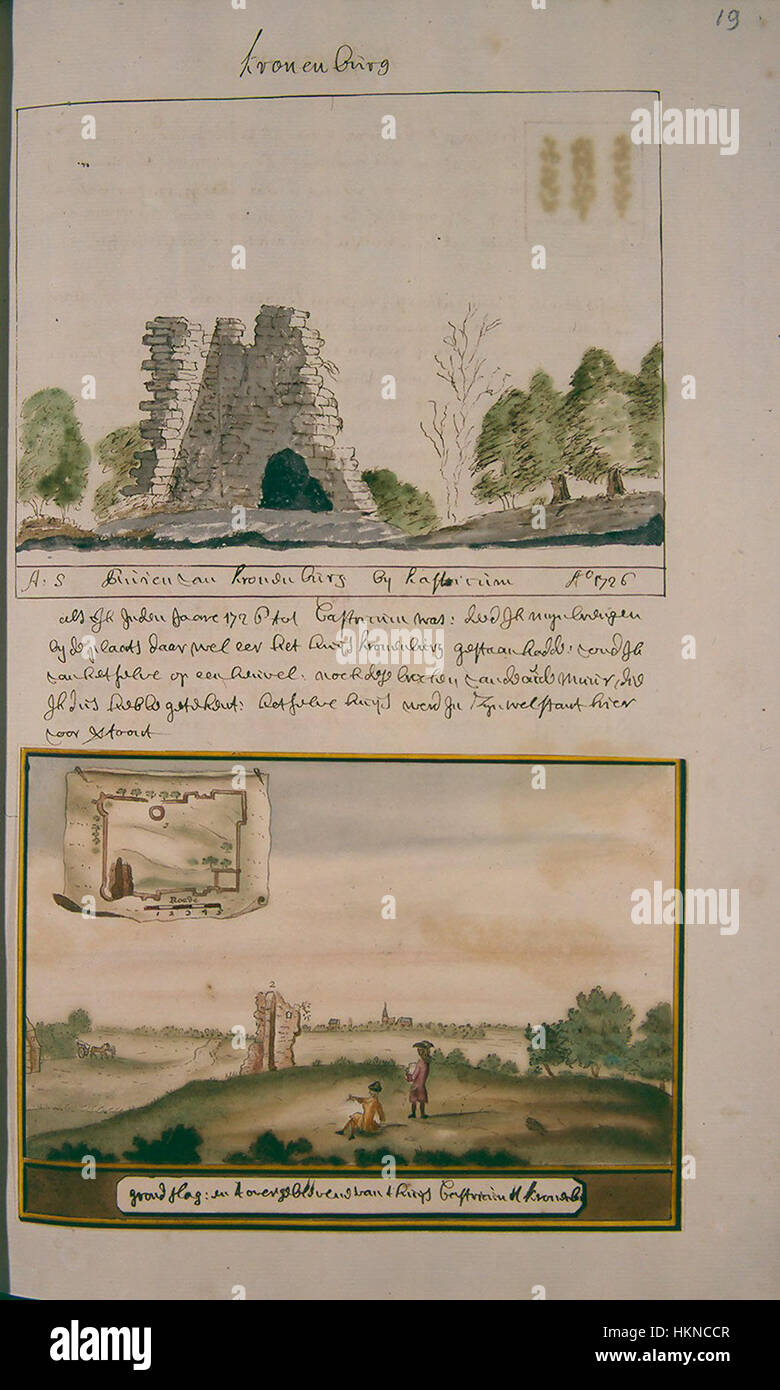 19
kronenburg
A: S Ruinen van kronenburg by kastricum A° 1726
als Ik Inden Jaare 1726 tot Castricum was: ded Ik mijn brengen
by de plaats daer wel eer het huijs kronenburg gestaan hadde: vond Ik
van het selve op een heuvel: noch dese brocken van de oude muur, die
Ik dus hebbe getekent: het selve huijs werd In Zijn welstant hier
voor
3
Roede
1 2 3 4 5
2
grond slag: en t overgeblevene van t huijs Castricum of kronenb
alamy
Image ID: HKNCCR
www.alamy.com